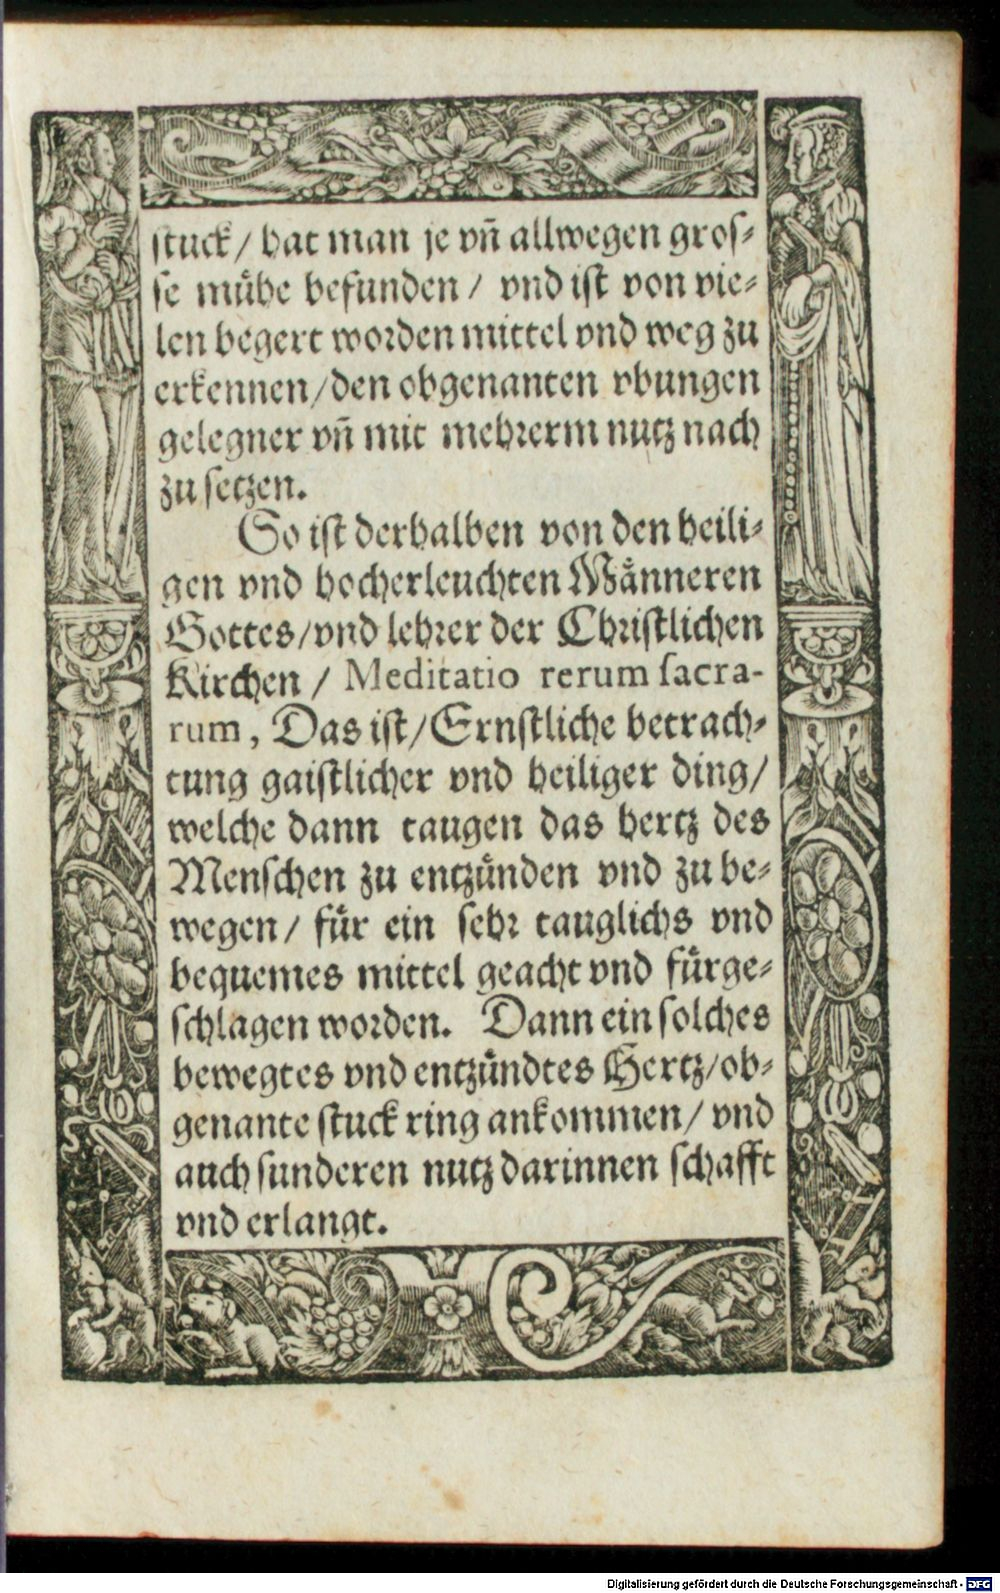 stuck/ hat man je vñ allwegen gros⸗
se mühe befunden/ vnd ist von vie⸗
len begert worden mittel vnd weg zu
erkennen/den obgenanten vbungen
gelegner vñ mit mehrerm nutz nach
zu setzen.
So ist derhalben von den heili⸗
gen vnd hocherleuchten Männeren
Gottes/vnd lehrer der Christlichen
Kirchen/ Meditatio rerum sacra-
rum, Das ist/Ernstliche betrach⸗
tung gaistlicher vnd heiliger ding/
welche dann taugen das hertz des
Menschen zu entzünden vnd zu be⸗
wegen/ für ein sehr tauglichs vnd
bequemes mittel geacht vnd fürge⸗
schlagen worden. Dann ein solches
bewegtes vnd entzündtes Hertz/ob⸗
genante stuck ring ankommen/ vnd
auch sunderen nutz darinnen schafft
vnd erlangt.
Digitalisierung gefördert durch die Deutsche Forschungsgemeinschaft - DFG